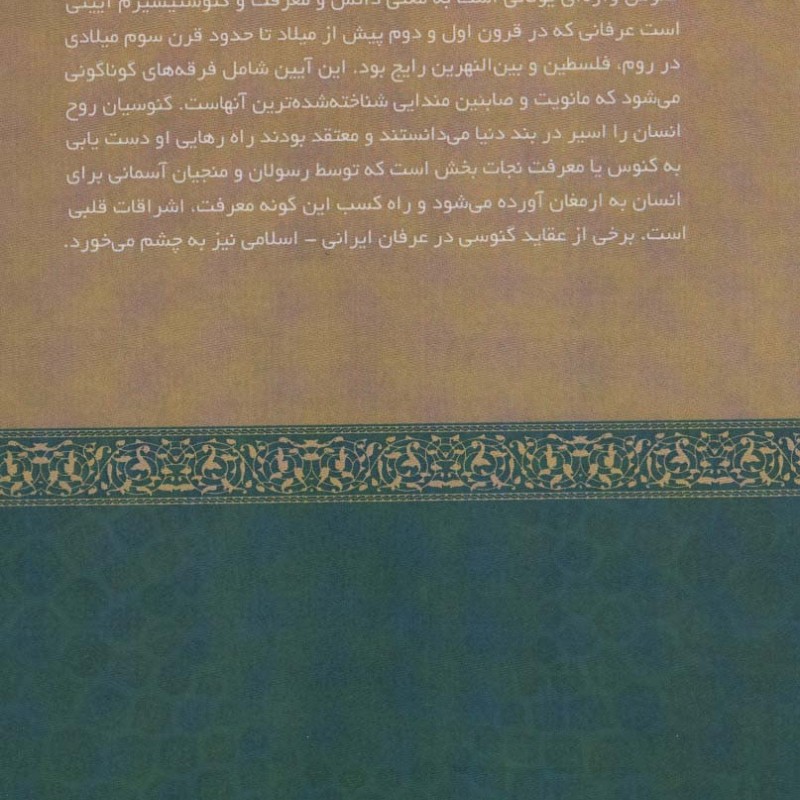 گنوس واژه‌ای یونانی است به معنی دانش و معرفت و گنوستیسیزم آیینی
است عرفانی که در قرون اول و دوم پیش از میلاد تا حدود قرن سوم میلادی
در روم، فلسطین و بین‌النهرین رایج بود. این آیین شامل فرقه‌های گوناگونی
می‌شود که مانویت و صابئین مندایی شناخته‌شده‌ترین آنهاست. گنوسیان روح
انسان را اسیر در بند دنیا می‌دانستند و معتقد بودند راه رهایی او دست یابی
به گنوس یا معرفت نجات بخش است که توسط رسولان و منجیان آسمانی برای
انسان به ارمغان آورده می‌شود و راه کسب این گونه معرفت، اشراقات قلبی
است. برخی از عقاید گنوسی در عرفان ایرانی – اسلامی نیز به چشم می‌خورد.